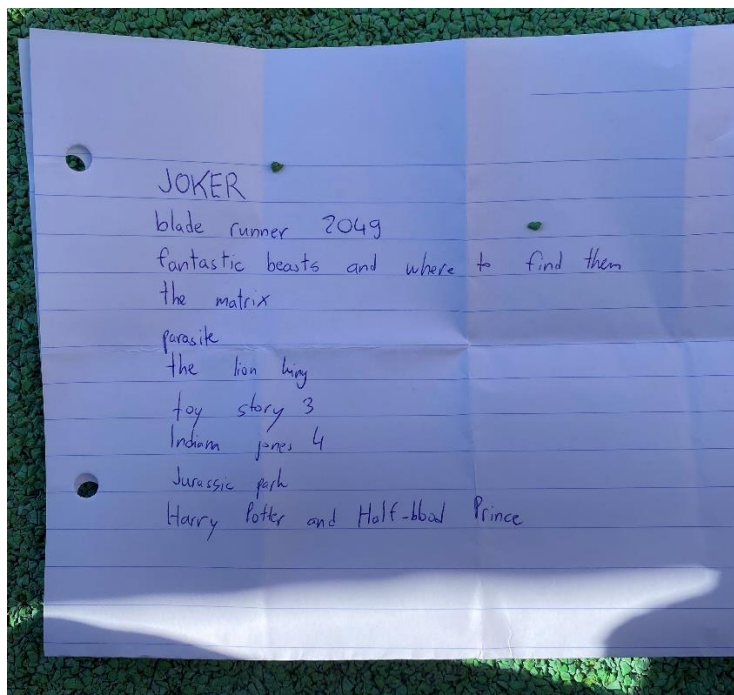 JOKER
blade runner 2049
fantastic beasts and where to find them
the matrix
parasite
the lion king
toy story 3
Indiana jones 4
Jurassic park
Harry Potter and Half-blood Prince